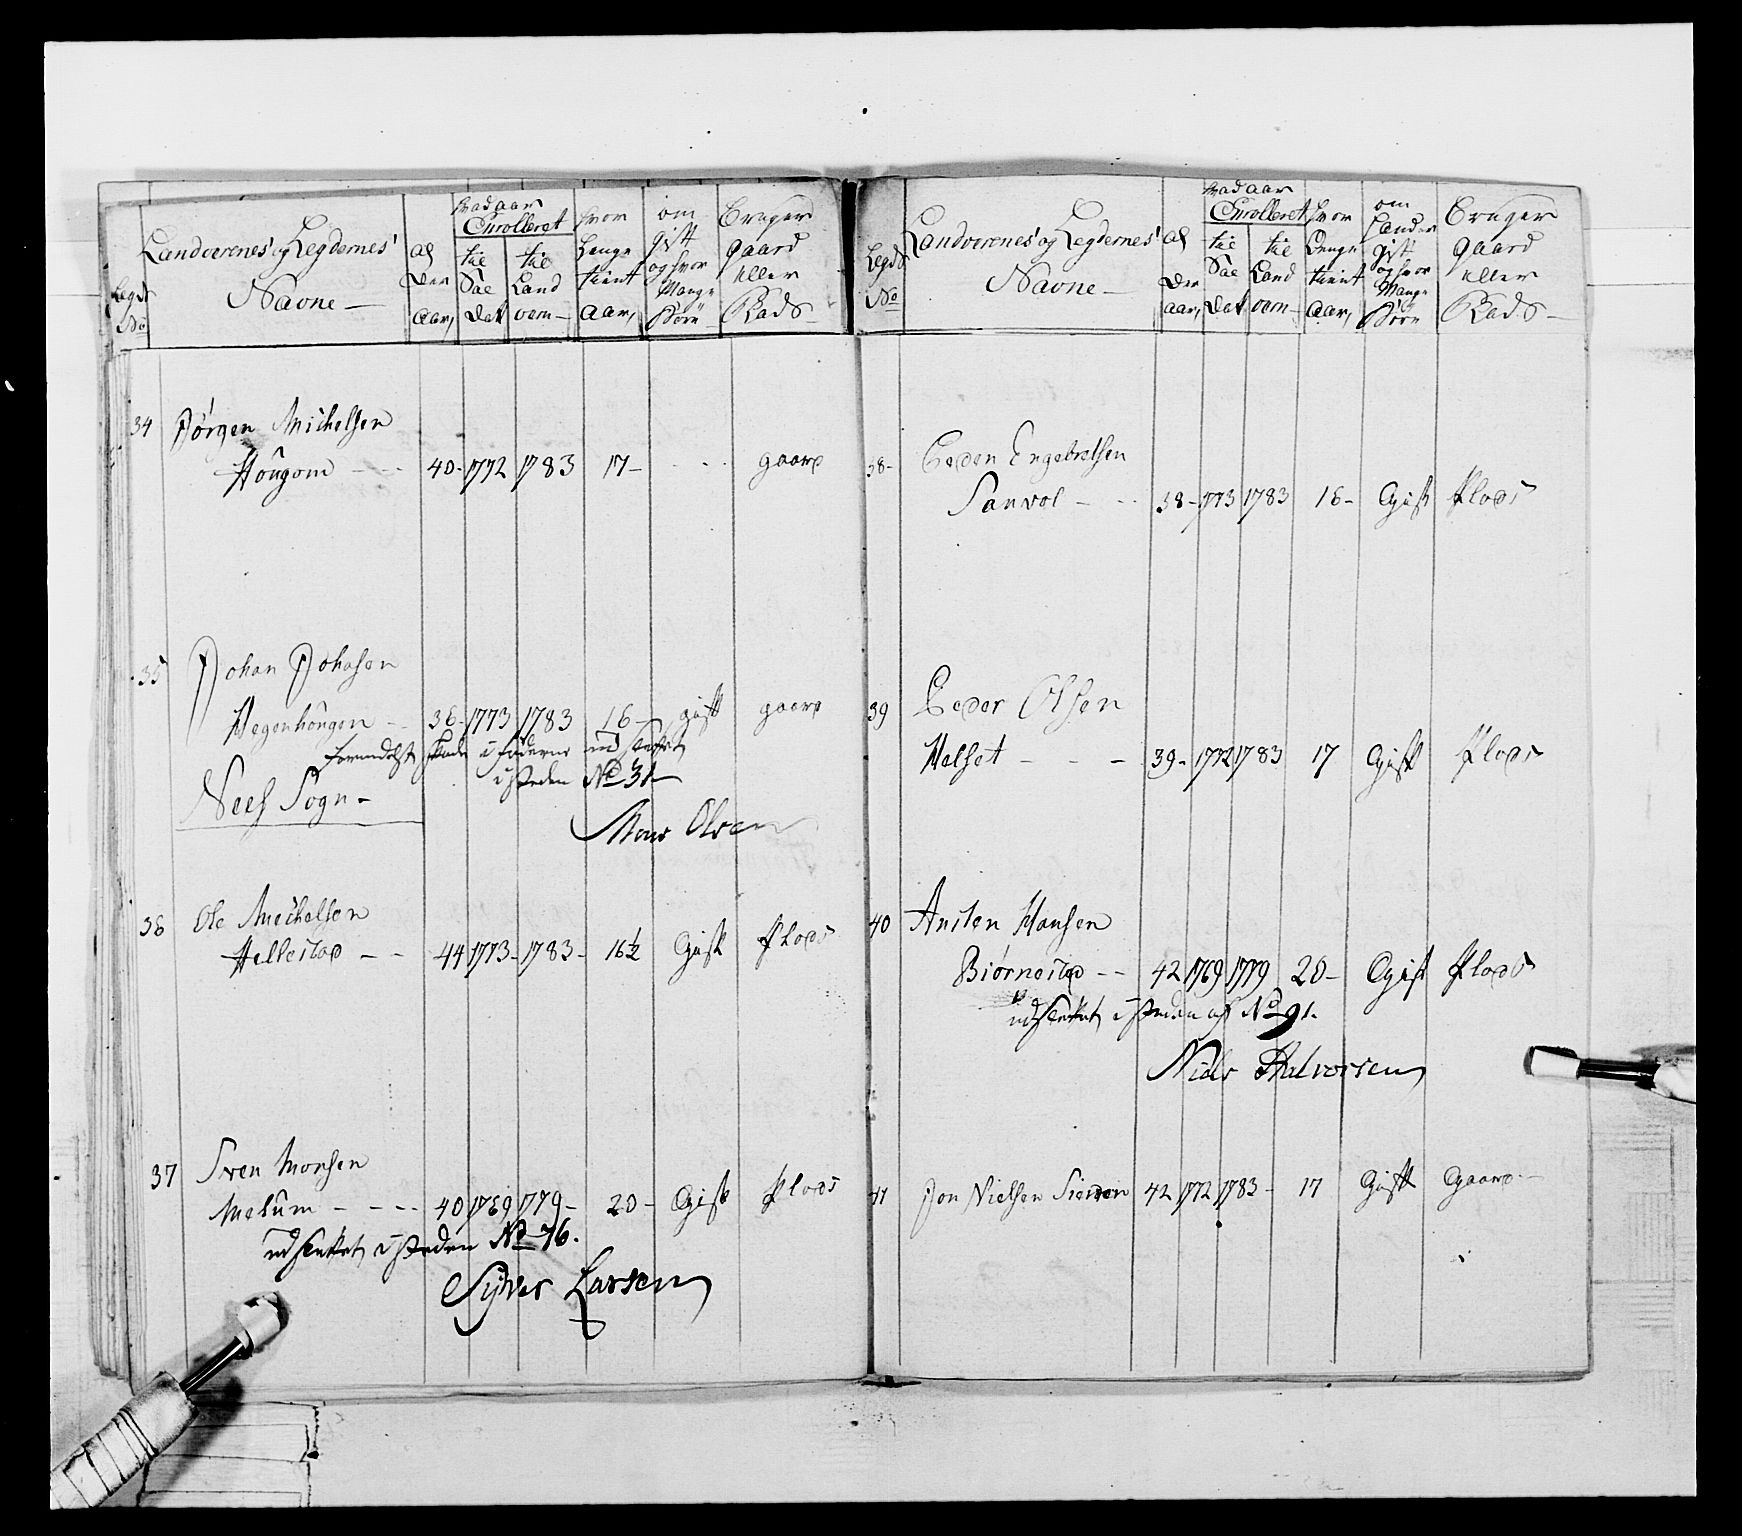 Legds No
Landværenes og Legdernes Navne —
al der aar,
hvad aar Enrolleret
til Sol dat
til Land vern —
hvor Lenge tient aar,
om gift og hvor Mange Börn
Bruger gaard eller Pads —
34 Jörgen Michelsen
Hougom — - - 40 - 1772 1783 17 - - - gaard
35 Johan Johasen
Hegenhougen - - 36 - 1773 1783 16 - gift gaard
udslettet
i steden No 31 —
Nees Sogn —
Mons Olsen
36 Ole Michelsen
Hellestad - - 44 1773 - 1783 - 16½ Gift Plads
37 Sven Monsen
Melum - - - - 40 1769 1779 - 20 - Gift Plads
udslettet i steden No 76.
Syver Larsen
Legds No
Landværenes og Legdernes Navne —
al der aar,
hvad aar Enrolleret
til Sol dat
til Land vern —
hvor Lenge tient aar,
om gift og hvor Mange Börn
Bruger gaard eller Pads —
38 - Peder Engebretsen
Sanvol - - - 38 - 1773 1783 16 - Gift Plads
39 Peder Olsen
Helset - - - 39 - 1772 1783 17 Gift Plads
40 Ansten Hansen
Biørnestad - - 42 1769 1779 20 - Gift Plads
udslettet i steden af No 91.
Niels Halvorsen
41 Jon Nielsen 42 1772 1783 - 17 Gift Gaard -